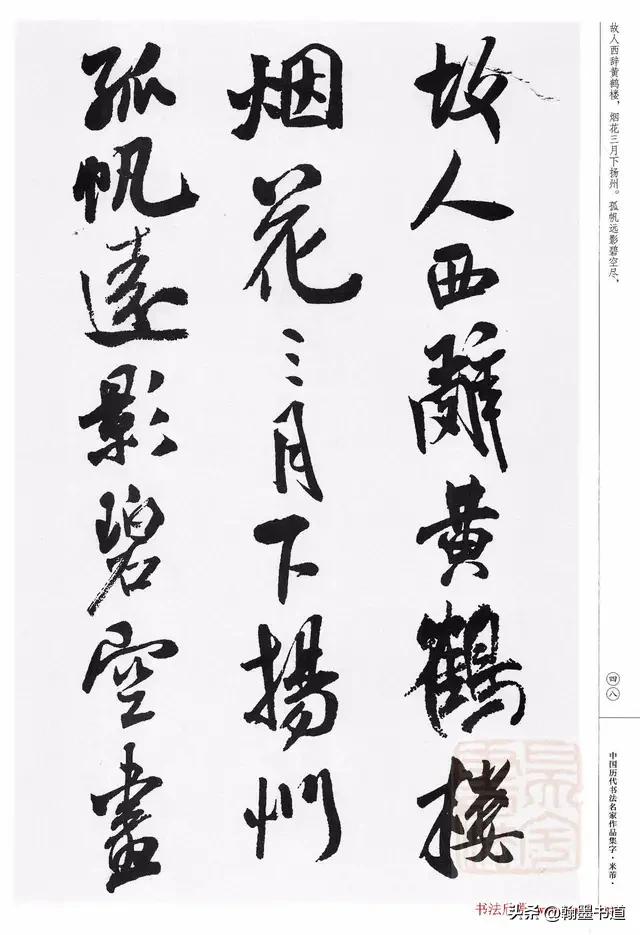 故人西辭黄鶴樓
烟花三月下揚州
孤帆遠影碧空盡
故人西辞黄鹤楼，烟花三月下扬州。孤帆远影碧空尽，
四八
中国历代书法名家作品集字·米芾·
书法欣赏
头条@翰墨书道